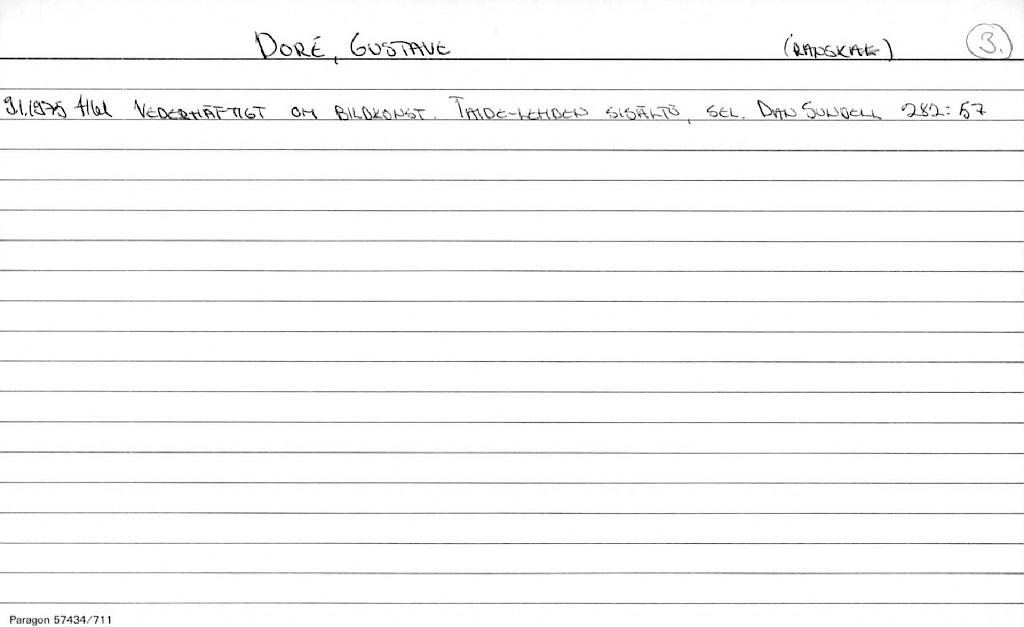 DORÉ, GUSTAVE (RANSKAE) 3.
9.1.1975 Hbl VEDERHÄFTIGT OM BILDKONST. TAIDE-LEHDEN SISÄLTÖ, SEL. DAN SUNDELL 282:57
Paragon 57434/711